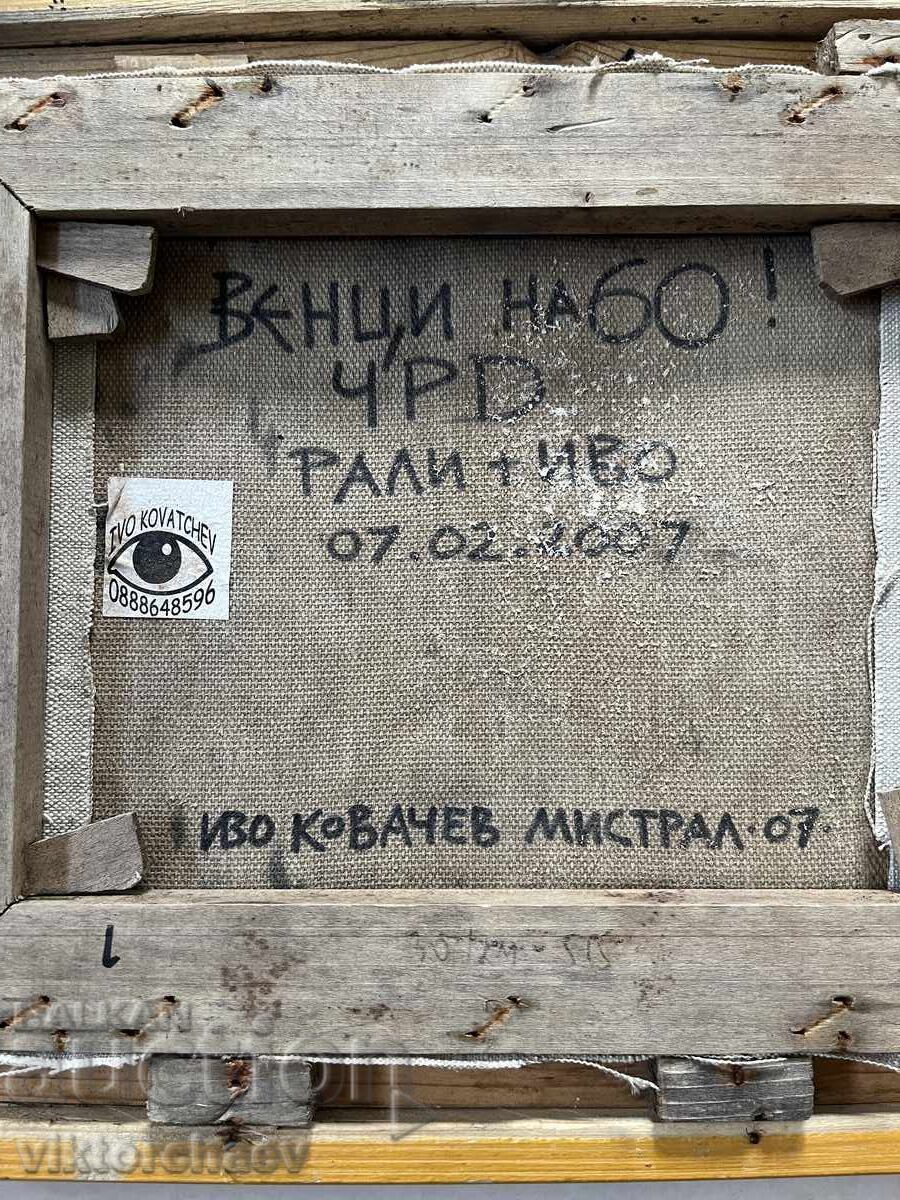 ВЕНЦИ НА 60!
ЧРD
РАЛИ + ИВО
07.02.2007
IVO KOVATCHEV
0888648596
ИВО КОВАЧЕВ МИСТРАЛ·07·
1
BALKAN
auction
viktorchaev